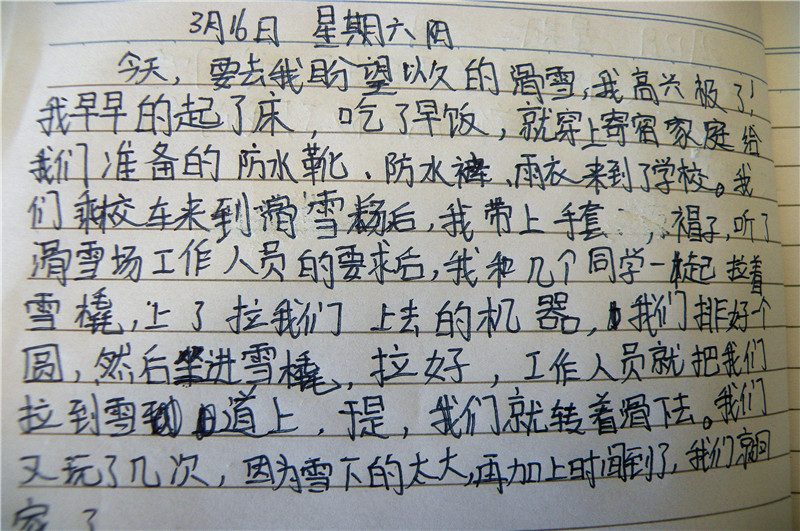 3月16日 星期六 阴
今天，要去我盼望以久的滑雪，我高兴极了！
我早早的起了床，吃了早饭，就穿上寄宿家庭给
我们准备的防水靴、防水裤、雨衣来到了学校。我
们乘校车来到滑雪场后，我带上手套，帽子，听了
滑雪场工作人员的要求后，我和几个同学一起拉着
雪橇，上了拉我们上去的机器，我们排好个
圆，然后坐进雪橇，拉好，工作人员就把我们
拉到雪道上，于是，我们就转着滑下去。我们
又玩了几次，因为雪下的太大，再加上时间到了，我们就回
家了